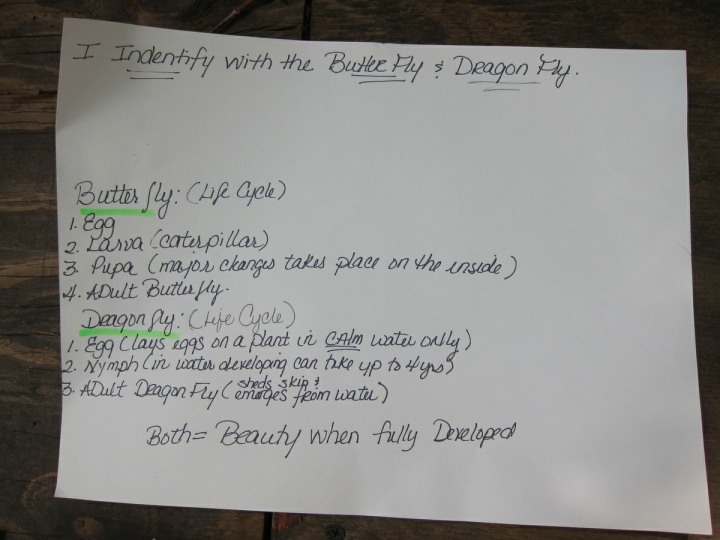 I Indentify with the Butter Fly & Dragon Fly.
Butterfly: (Life Cycle)
1. Egg
2. Larva (caterpillar)
3. Pupa (major changes takes place on the inside)
4. Adult Butterfly.
Dragonfly: (Life Cycle)
1. Egg (lays eggs on a plant in CAlm water only)
2. Nymph (in water developing can take up to 4yrs)
3. Adult Dragon Fly (sheds skin & emerges from water)
Both = Beauty when fully Developed